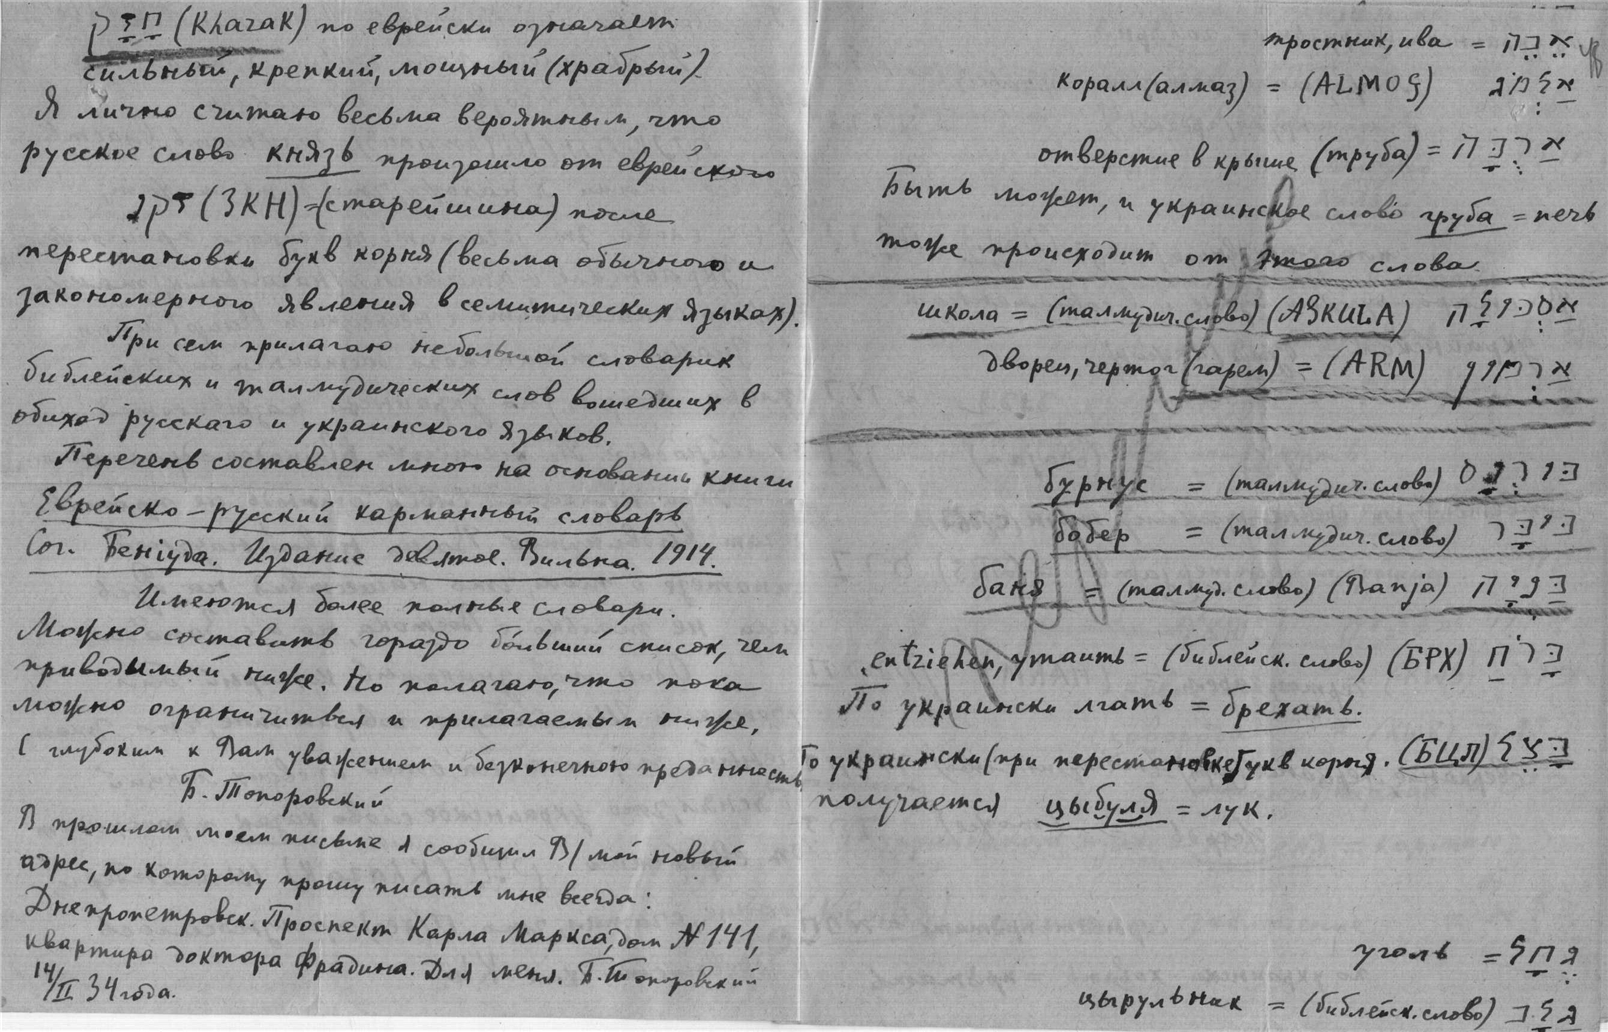 חזק (Khazak) по еврейски означает
сильный, крепкий, мощный (храбрый).
Я лично считаю весьма вероятным, что
русское слово князь произошло от еврейского
זקן (ЗКН) = (старейшина) после
перестановки букв корня (весьма обычного и
закономерного явления в семитических языках).
При сем прилагаю небольшой словарик
библейских и талмудических слов вошедших в
обиход русскаго и украинского языков.
Перечень составлен мною на основании книги
Еврейско-русский карманный словарь
Соч. Бенiуда. Издание девятое. Вильна. 1914.
Имеются более полные словари.
Можно составить гораздо бо́льший список, чем
приводимый ниже. Но полагаю, что пока
можно ограничиться и прилагаемым ниже.
С глубоким к Вам уважением и безконечною преданностью
Б. Топоровский
В прошлом моем письме я сообщил В/ мой новый
адрес, по которому прошу писать мне всегда:
Днепропетровск. Проспект Карла Маркса, дом N 141,
квартира доктора Фрадина. Для меня. Б. Топоровский
14/II 34 года.
тростник, ива = אבה
коралл (алмаз) = (ALMOG) אלמג
отверстие в крыше (труба) = ארבה
Быть может, и украинское слово груба = печь
тоже происходит от этого слова.
школа = (талмудич. слово) (ASKULA) אסכולה
дворец, чертог (гарем) = (ARM) ארמון
бурнус = (талмудич. слово) בורנס
бобер = (талмудич. слово) ביבר
баня = (талмуд. слово) (Banja) בניה
entziehen, утаить = (библейск. слово) (БРХ) ברח
По украински лгать = брехать.
По украински (при перестановке букв корня). (БЦЛ) בצל
получается цыбуля = лук.
уголь = גחל
цырульник = (библейск. слово) גלב